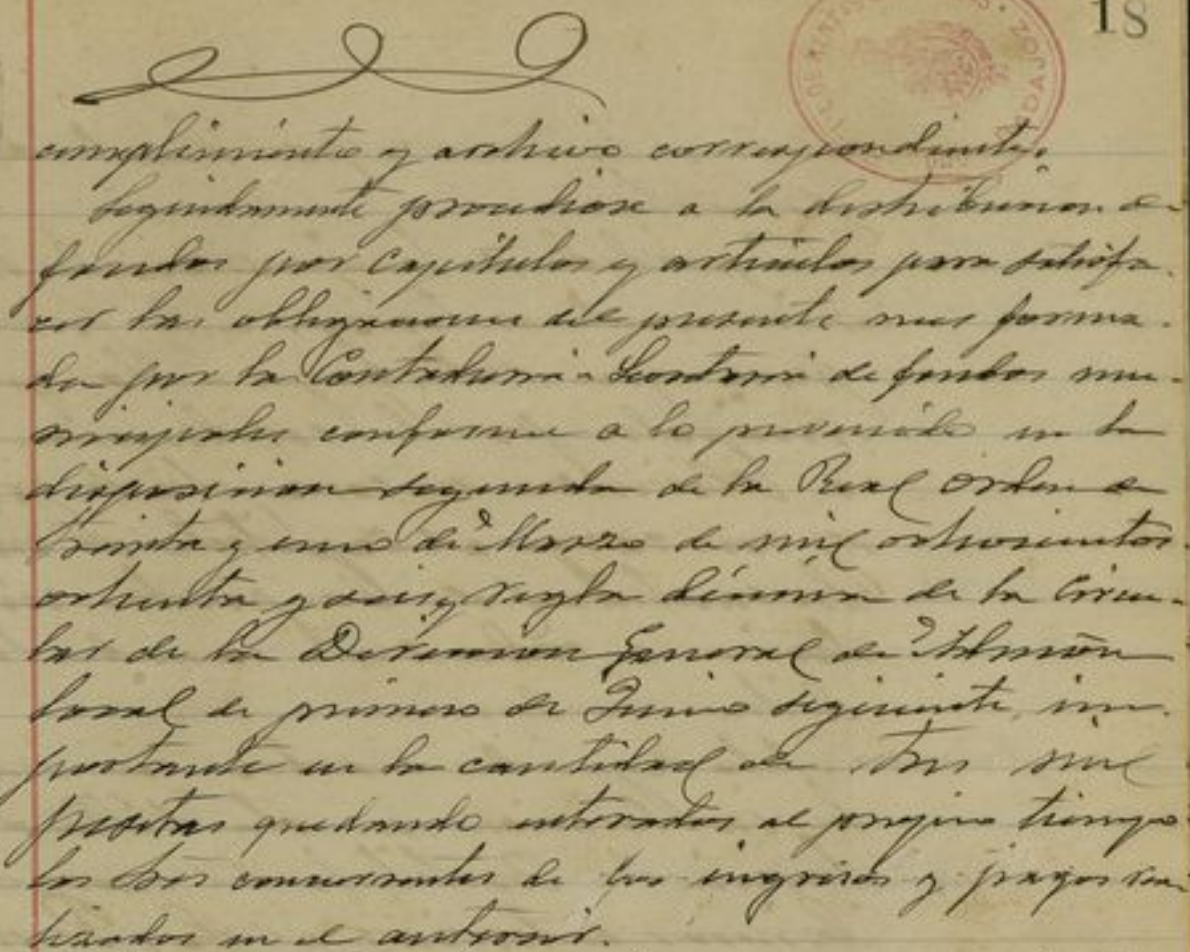 18
BADAJOZ
cumplimiento y archivo correspondiente.
Seguidamente procediose a la distribucion de
fondos por capitulos y articulos para satisfa-
cer las obligaciones del presente mes forma-
da por la Contaduria-Secretaria de fondos mu-
nicipales conforme a lo prevenido en la
disposicion segunda de la Real orden de
treinta y uno de Marzo de mil ochocientos
ochenta y seis, y regla décima de la Circu-
lar de la Direccion General de Admón
local de primero de Junio siguiente, im-
portante en la cantidad de tres mil
pesetas quedando enterados al propio tiempo
los Sres concurrentes de los ingresos y pagos rea-
lizados en el anterior.